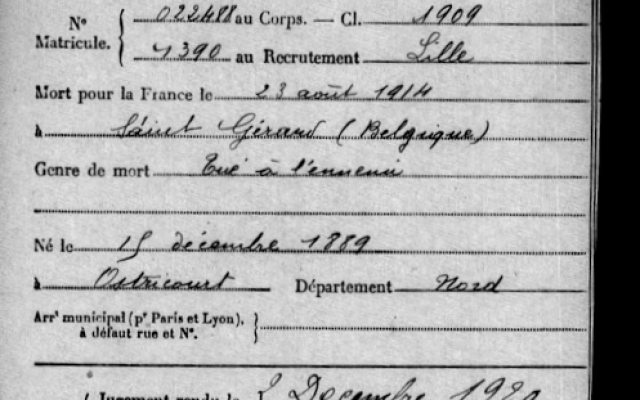 N° Matricule. { 022488 au Corps. — Cl. 1909
4390 au Recrutement Lille
Mort pour la France le 23 août 1914
à Saint Gérard (Belgique)
Genre de mort Tué à l'ennemi
Né le 15 décembre 1889
à Ostricourt Département Nord
Arrt municipal (pr Paris et Lyon), }
à défaut rue et N°.
Jugement rendu le 2 Decembre 1920